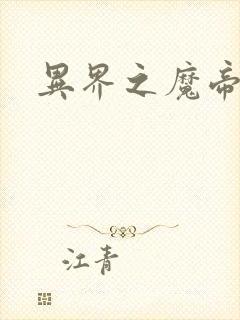 異界之魔帝
江青